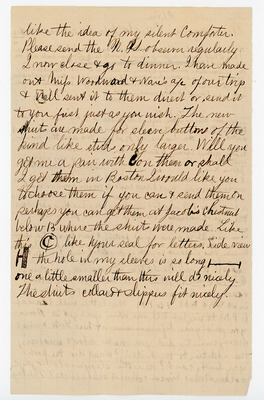 like the idea of my silent Comforter.
Please send the N. Y. Observer regularly
I now close & go to dinner. I have made
out Miss Woodward & Ware's a/c of our trip
& will send it to them direct or send it
to you first just as you wish. The new
shirts are made for sleeve buttons of the
kind like stud only larger. Will you
get me a pair with C on them or shall
I get them in Boston I would like you
to choose them if you can & send them on
perhaps you can get them at Jacobs Chestnut
below 13 where the shirts were made. Like
this C like your seal for letters. Side view
H the hole in my sleeves is so long
one a little smaller than this will do nicely
The shirts collars & slippers fit nicely.